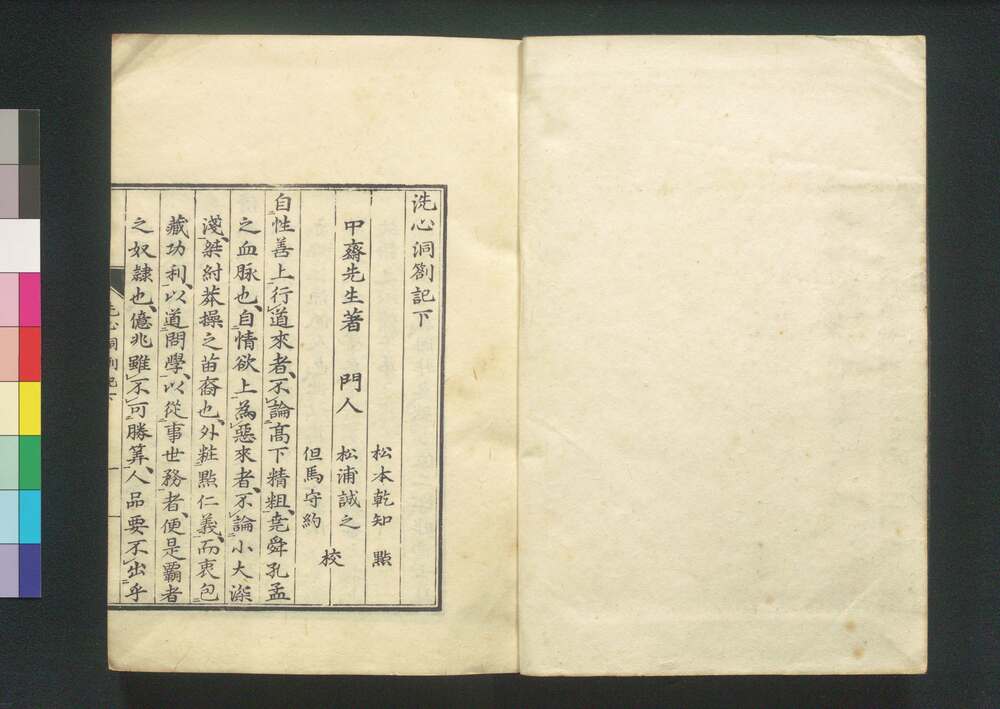 洗心洞劄記下
中齋先生著　門人
松本乾知　點
松浦誠之
但馬守約
校
自性善上行道來者、不論高下精粗、堯舜孔孟
之血脉也、自情欲上為惡來者、不論小大深
淺、桀紂莽操之苗裔也、外粧點仁義、而衷包
藏功利、以道問學、以從事世務者、便是霸者
之奴隷也、億兆雖不可勝算、人品要不出乎
洗心洞劄記下